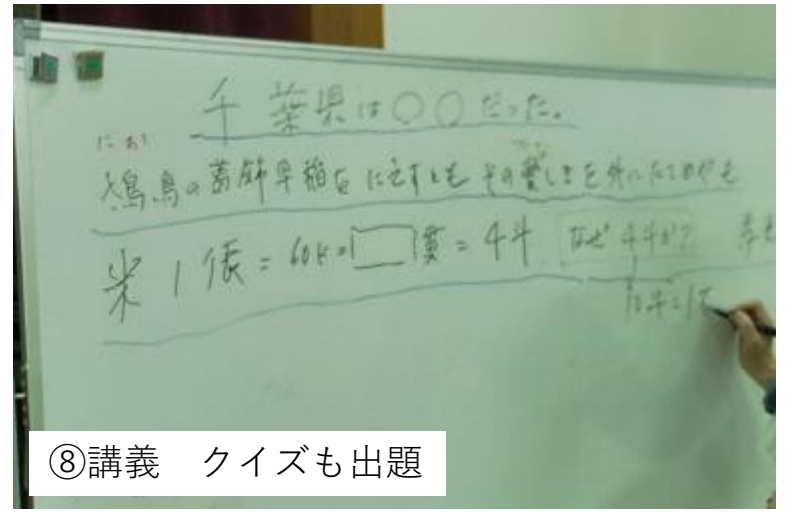 千葉県は〇〇だった。
にお
鳰鳥の葛飾早稲をにえすともその愛しきを外にたてめやも
米1俵=60K=□貫=4斗 なぜ4斗か?
10斗=1石
⑧講義 クイズも出題